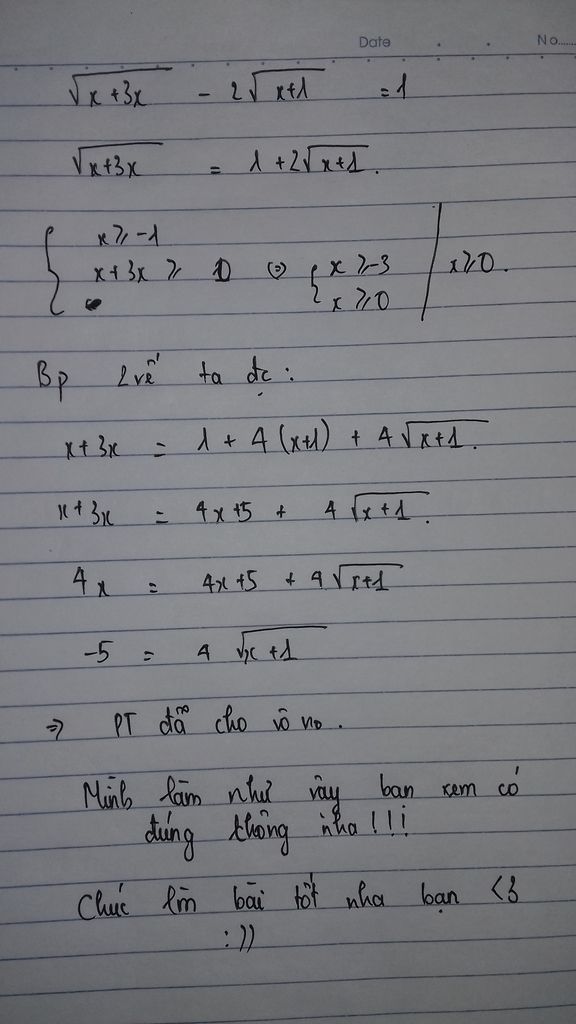 Date No......
√(x+3x) - 2√(x+1) = 1
√(x+3x) = 1 + 2√(x+1).
{ x ≥ -1
x+3x ≥ 0 ⇔ { x ≥ -3 | x ≥ 0.
x ≥ 0
Bp 2 vế ta đc:
x+3x = 1 + 4(x+1) + 4√(x+1).
x+3x = 4x+5 + 4√(x+1).
4x = 4x+5 + 4√(x+1)
-5 = 4√(x+1)
⇒ PT đã cho vô no.
Mình làm như vậy bạn xem có
đúng không nha!!!
Chúc làm bài tốt nha bạn <3
:))